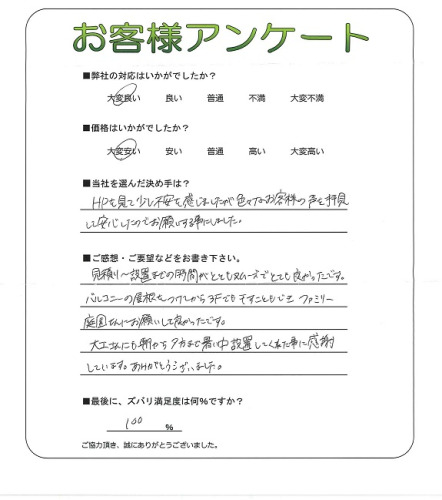 お客様アンケート
■弊社の対応はいかがでしたか?
大変良い 良い 普通 不満 大変不満
■価格はいかがでしたか?
大変安い 安い 普通 高い 大変高い
■当社を選んだ決め手は?
HPを見て少し不安を感じましたが色々なお客様の声を拝見
して安心したのでお願いする事にしました。
■ご感想・ご要望などをお書き下さい。
見積り〜設置までの時間がとてもスムーズでとても良かったです。
バルコニーの屋根をつけてから3Fでも干すこともでき ファミリー
庭園さんにお願いして良かったです。
大工さんにも朝から夕方まで暑い中設置してくれた事に感謝
しています。ありがとうございました。
■最後に、ズバリ満足度は何%ですか?
100 %
ご協力頂き、誠にありがとうございました。